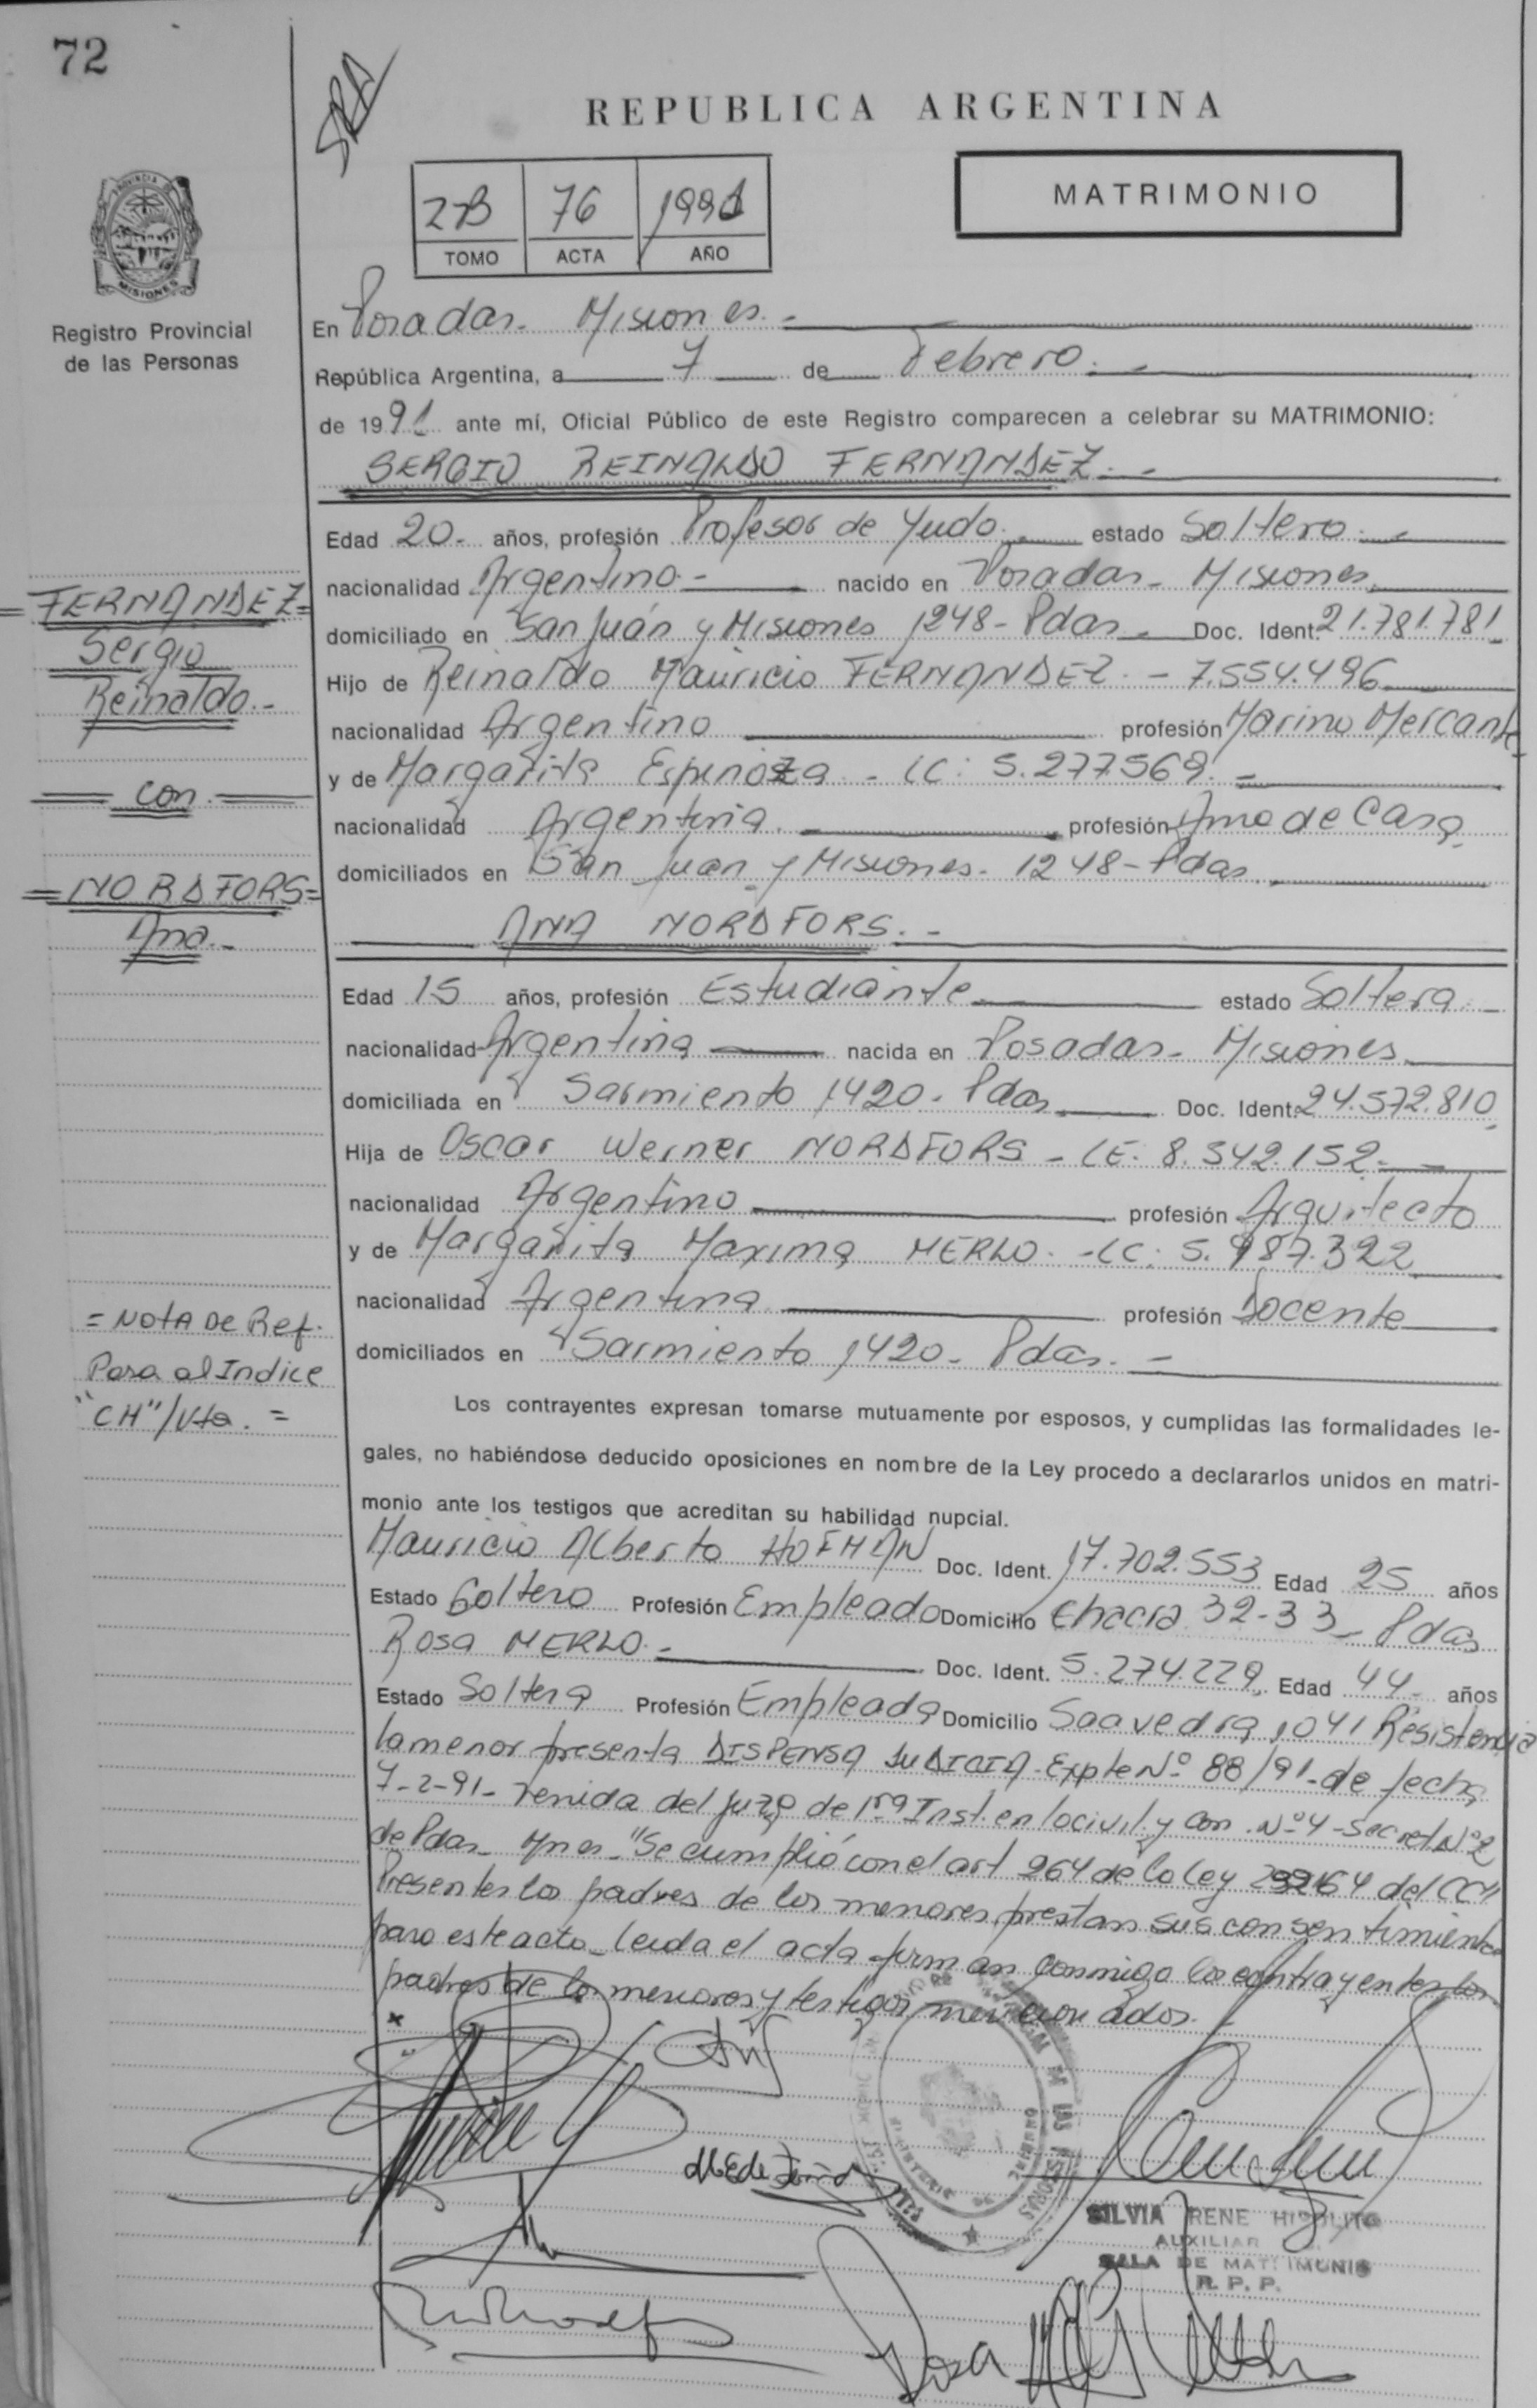 72
SRA
REPUBLICA ARGENTINA
2B 76 1991
TOMO ACTA AÑO
MATRIMONIO
PROVINCIA DE MISIONES
Registro Provincial
de las Personas
En Posadas- Misiones.-
República Argentina, a 7 de Febrero.-
de 1991 ante mí, Oficial Público de este Registro comparecen a celebrar su MATRIMONIO:
SERGIO REINALDO FERNANDEZ.-
Edad 20- años, profesión Profesor de Yudo.- estado Soltero.-
nacionalidad Argentino.- nacido en Posadas- Misiones
domiciliado en San Juán y Misiones 1248- Pdas- Doc. Ident. 21.781.781
Hijo de Reinaldo Mauricio FERNANDEZ.- 7.554.496
nacionalidad Argentino profesión Marino Mercante
y de Margarita Espinoza - LC: 5.277569.-
nacionalidad Argentina. profesión Ama de Casa
domiciliados en San Juan y Misiones- 1248- Pdas
=FERNANDEZ=
Sergio
Reinaldo.-
= con =
=NORDFORS=
Ana.-
ANA NORDFORS.-
Edad 15 años, profesión Estudiante estado Soltera.-
nacionalidad Argentina nacida en Posadas- Misiones
domiciliada en Sarmiento 1420- Pdas Doc. Ident. 24.572.810
Hija de Oscar Werner NORDFORS - LE: 8.542.152-
nacionalidad Argentino profesión Arquitecto
y de Margarita Maxima MERLO.- LC: 5.987.322
nacionalidad Argentina profesión Docente
domiciliados en Sarmiento 1420- Pdas.-
= NOTA DE Ref.
Pasa al Indice
"CH"/Vta. =
Los contrayentes expresan tomarse mutuamente por esposos, y cumplidas las formalidades le-
gales, no habiéndose deducido oposiciones en nombre de la Ley procedo a declararlos unidos en matri-
monio ante los testigos que acreditan su habilidad nupcial.
Mauricio Alberto HOFMAN Doc. Ident. 17.702.553 Edad 25 años
Estado Soltero Profesión Empleado Domicilio Chacra 32-33- Pdas
Rosa MERLO.- Doc. Ident. 5.274.229 Edad 44- años
Estado Soltera Profesión Empleada Domicilio Saavedra 1041 Resistencia
la menor presenta DISPENSA JUDICIA- Expte Nº 88/91- de fecha
7-2-91- venida del Juzg de 1ra Inst. en lo civil y Com. Nº 4- Secret Nº 2
de Pdas- Mnes- "Se cumplió con el art 264 de la ley 264 del CC"
Presentes los padres de los menores prestan sus consentimiento
para este acto- leida el acta firman conmigo los contrayentes los
padres de los menores y testigos mencionados.-
SILVIA IRENE HIPOLITO
AUXILIAR
SALA DE MATRIMONIO
R. P. P.
Rosa